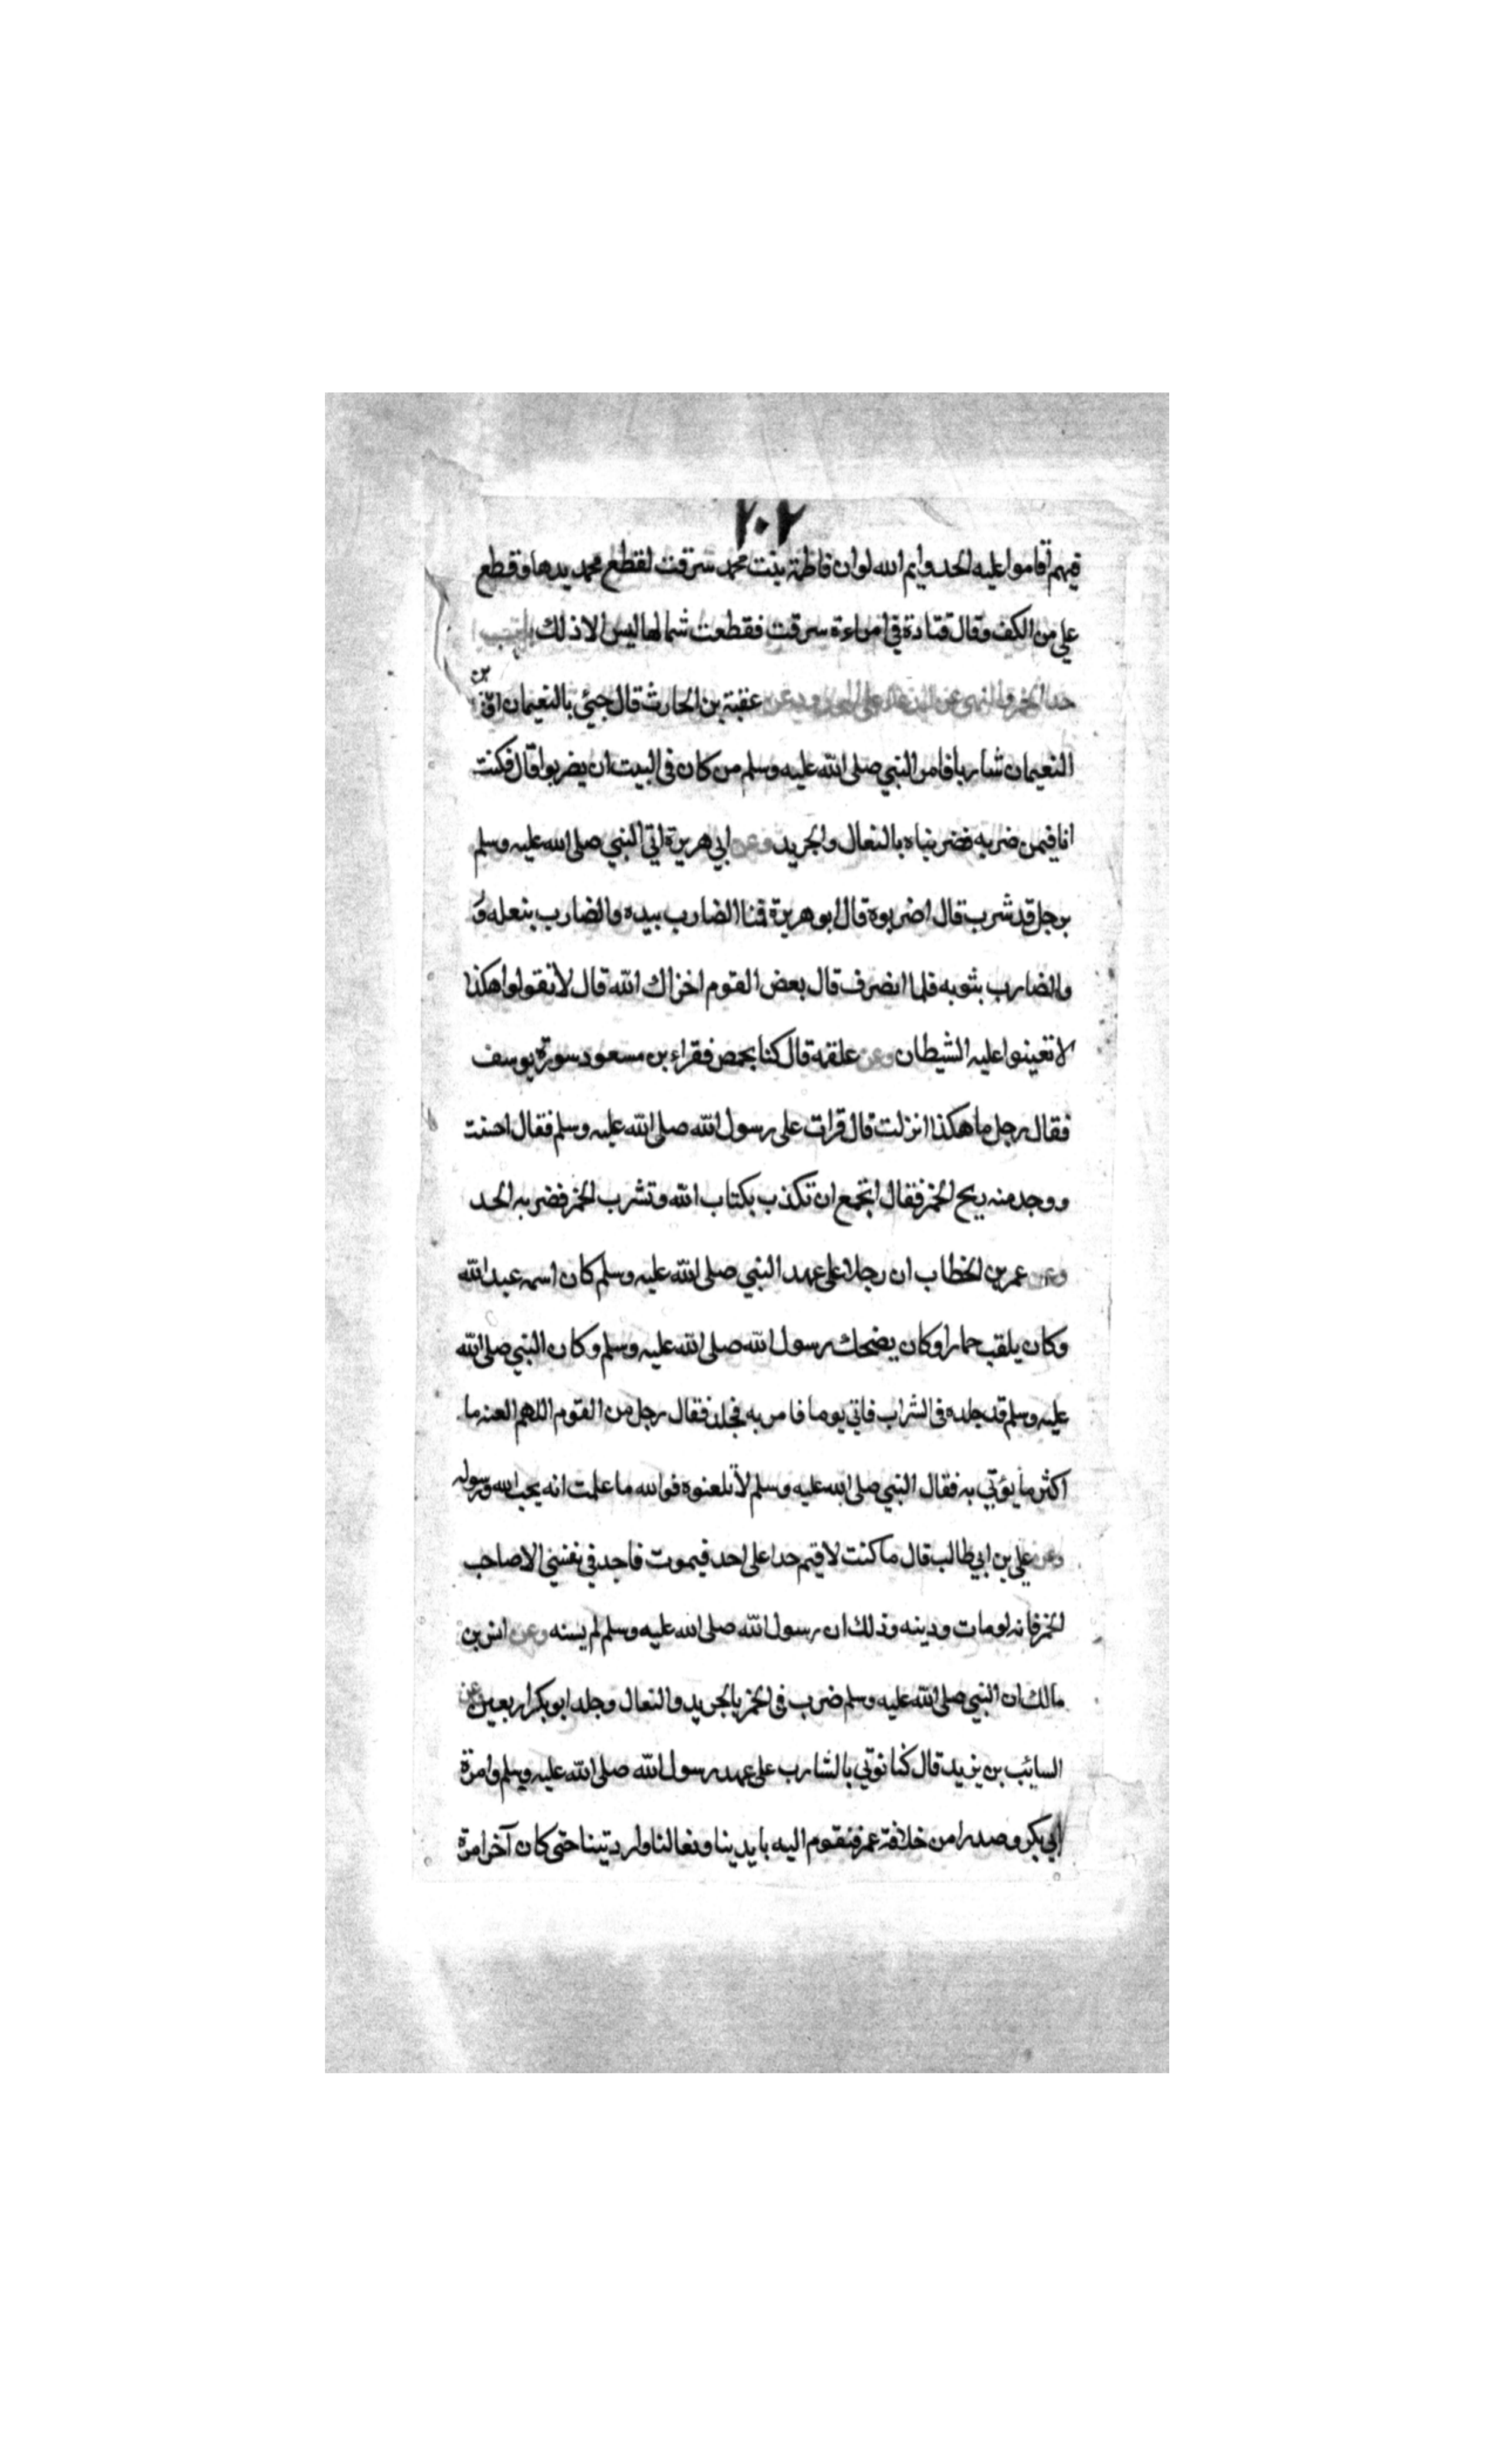 ٢٠٢
فيهم أقاموا عليه الحد وايم الله لو ان فاطمة بنت محمد سرقت لقطع محمد يدها وقطع
علي من الكف وقال قتادة في امراءة سرقت فقطعت شمالها ليس الا ذلك باب
حد الخمر والنهي عن عقبة بن الحارث قال جيئ بالنعيمان او بن
النعيمان شاربا فامر النبي صلى الله عليه وسلم من كان في البيت ان يضربوا قال فكنت
انا فيمن ضربه فضربناه بالنعال والجريد وعن ابي هريرة اتي النبي صلى الله عليه وسلم
برجل قد شرب قال اضربوه قال ابو هريرة فمنا الضارب بيده والضارب بنعله و
والضارب بثوبه فلما انصرف قال بعض القوم اخزاك الله قال لا تقولوا هكذا
لا تعينوا عليه الشيطان وعن علقمه قال كنا بحمص فقراء بن مسعود سورة يوسف
فقال رجل ما هكذا انزلت قال قرات على رسول الله صلى الله عليه وسلم فقال احسنت
ووجد منه ريح الخمر فقال اتجمع ان تكذب بكتاب الله وتشرب الخمر فضربه الحد
وعن عمر بن الخطاب ان رجلا على عهد النبي صلى الله عليه وسلم كان اسمه عبد الله
وكان يلقب حمارا وكان يضحك رسول الله صلى الله عليه وسلم وكان النبي صلى الله
عليه وسلم قد جلده في الشراب فاتي يوما فامر به فجلد فقال رجل من القوم اللهم العنه ما
اكثر ما يؤتي به فقال النبي صلى الله عليه وسلم لا تلعنوه فوالله ما علمت انه يحب الله ورسوله
وعن علي بن ابي طالب قال ما كنت لاقيم حدا على احد فيموت فاجد في نفسي الا صاحب
الخمر فانه لو مات وديته وذلك ان رسول الله صلى الله عليه وسلم لم يسنه وعن انس بن
مالك ان النبي صلى الله عليه وسلم ضرب في الخمر بالجريد والنعال وجلد ابو بكر اربعين وعن
السائب بن يزيد قال كنا نوتي بالشارب على عهد رسول الله صلى الله عليه وسلم وامرة
ابي بكر وصدرا من خلافة عمر فنقوم اليه بايدينا ونعالنا وارديتنا حتى كان آخر امرة